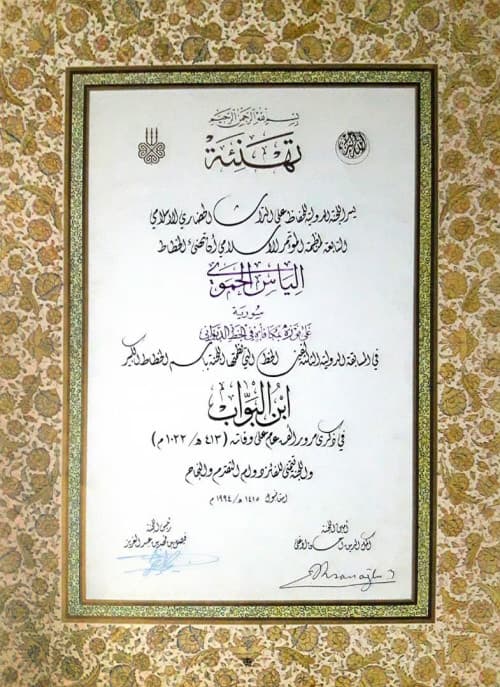 بسم الله الرحمن الرحيم
تهنئة
الله أكبر
يسر اللجنة الدولية للحفاظ على التراث الحضاري الإسلامي
التابعة لمنظمة المؤتمر الإسلامي أن تهنئ الخطاط
الياس الحموي
سورية
على فوزه بمكافأة في الخط الديواني
في المسابقة الدولية الثالثة لفن الخط التي نظمتها اللجنة باسم الخطاط الكبير
ابن البواب
في ذكرى مرور ألف عام على وفاته (٤١٣ هـ/١٠٢٢ م)
واللجنة تتمنى للفائز دوام التقدم والنجاح
استانبول ١٤١٥ هـ/١٩٩٤ م
أمين اللجنة
أكمل الدين إحسان أوغلى
رئيس اللجنة
فيصل بن فهد بن عبد العزيز